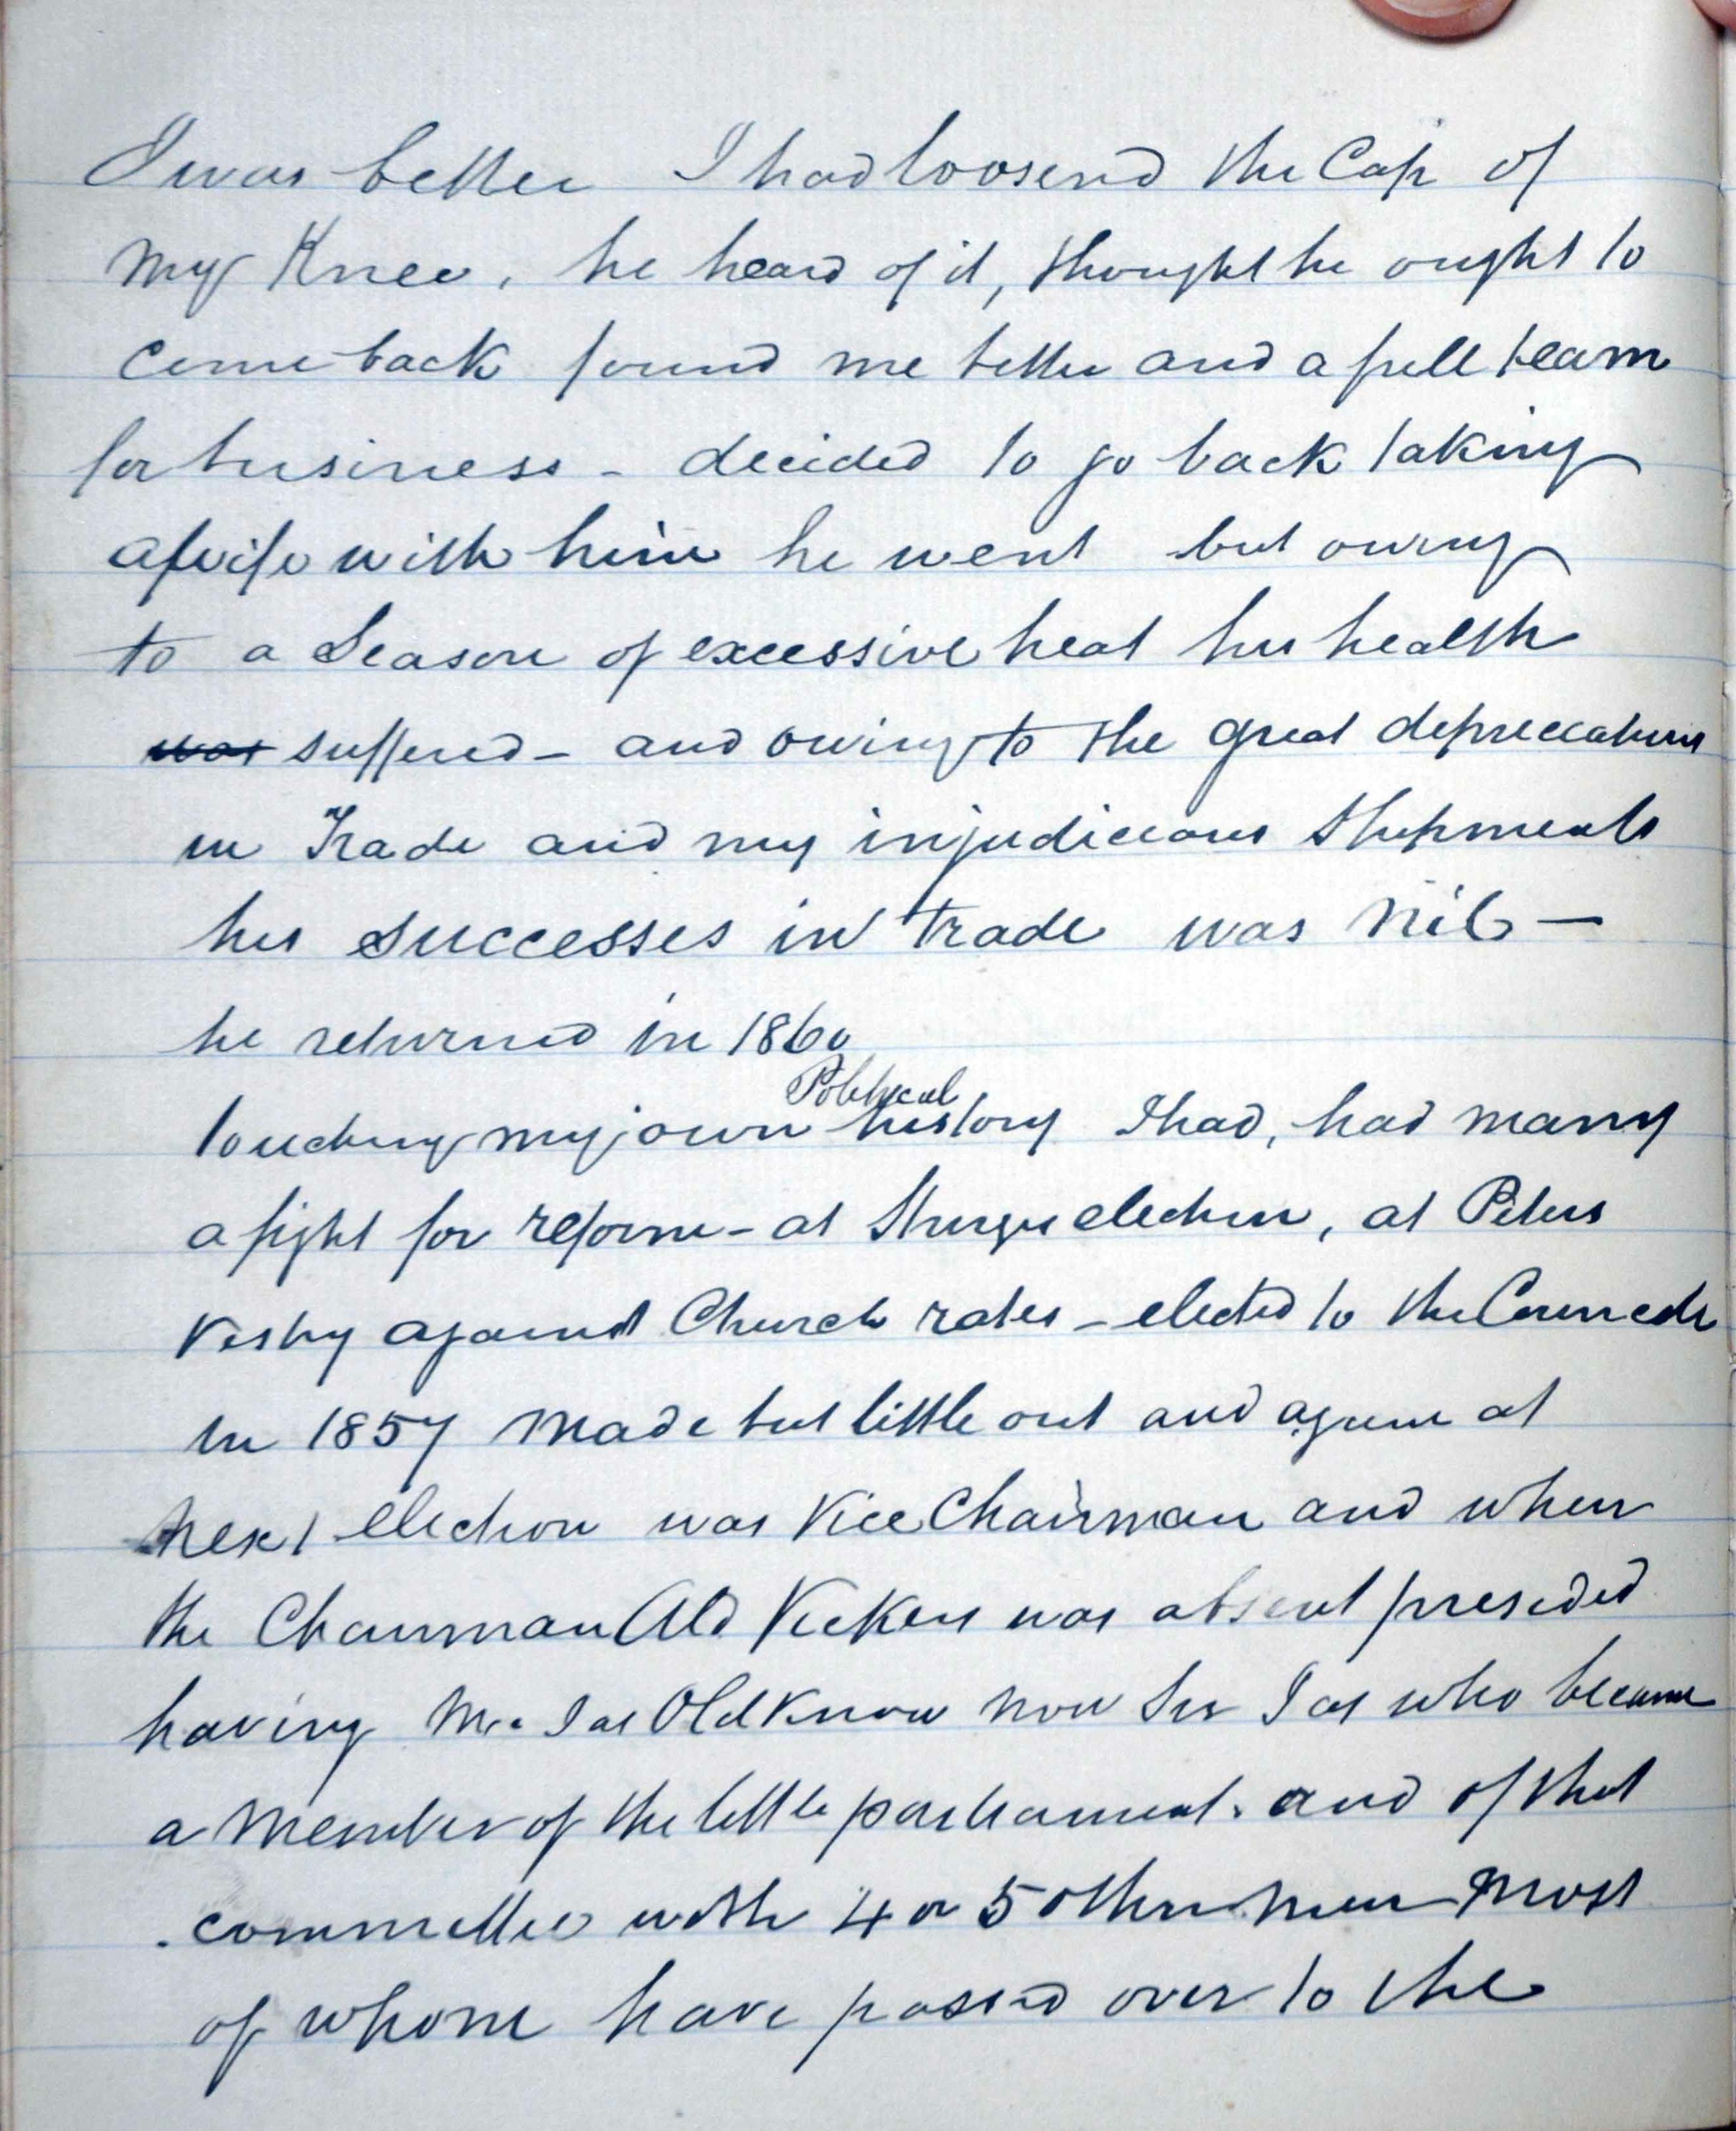 I was better I had loosend the Cap of
my Knee, he heard of it, thought he ought to
come back found me better and a full team
for business - decided to go back taking
a wife with him he went but owing
to a Season of excessive heat his health
was suffered - and owing to the great depreccations
in Trade and my injudicious Shipments
his successes in trade was Nil —
he returned in 1860
Political
touching my own history I had, had many
a fight for reform - at Sturges election, at Peters
Vestry against Church rates - elected to the Councils
in 1857 Made but little out and again at
next election was Vice Chairman and when
the Chairman Ald Vickers was absent presided
having Mr. Jas OldKnow now Sir Jas who became
a Member of the little parliament. and of that
committee with 4 or 5 other men most
of whom have passed over to the